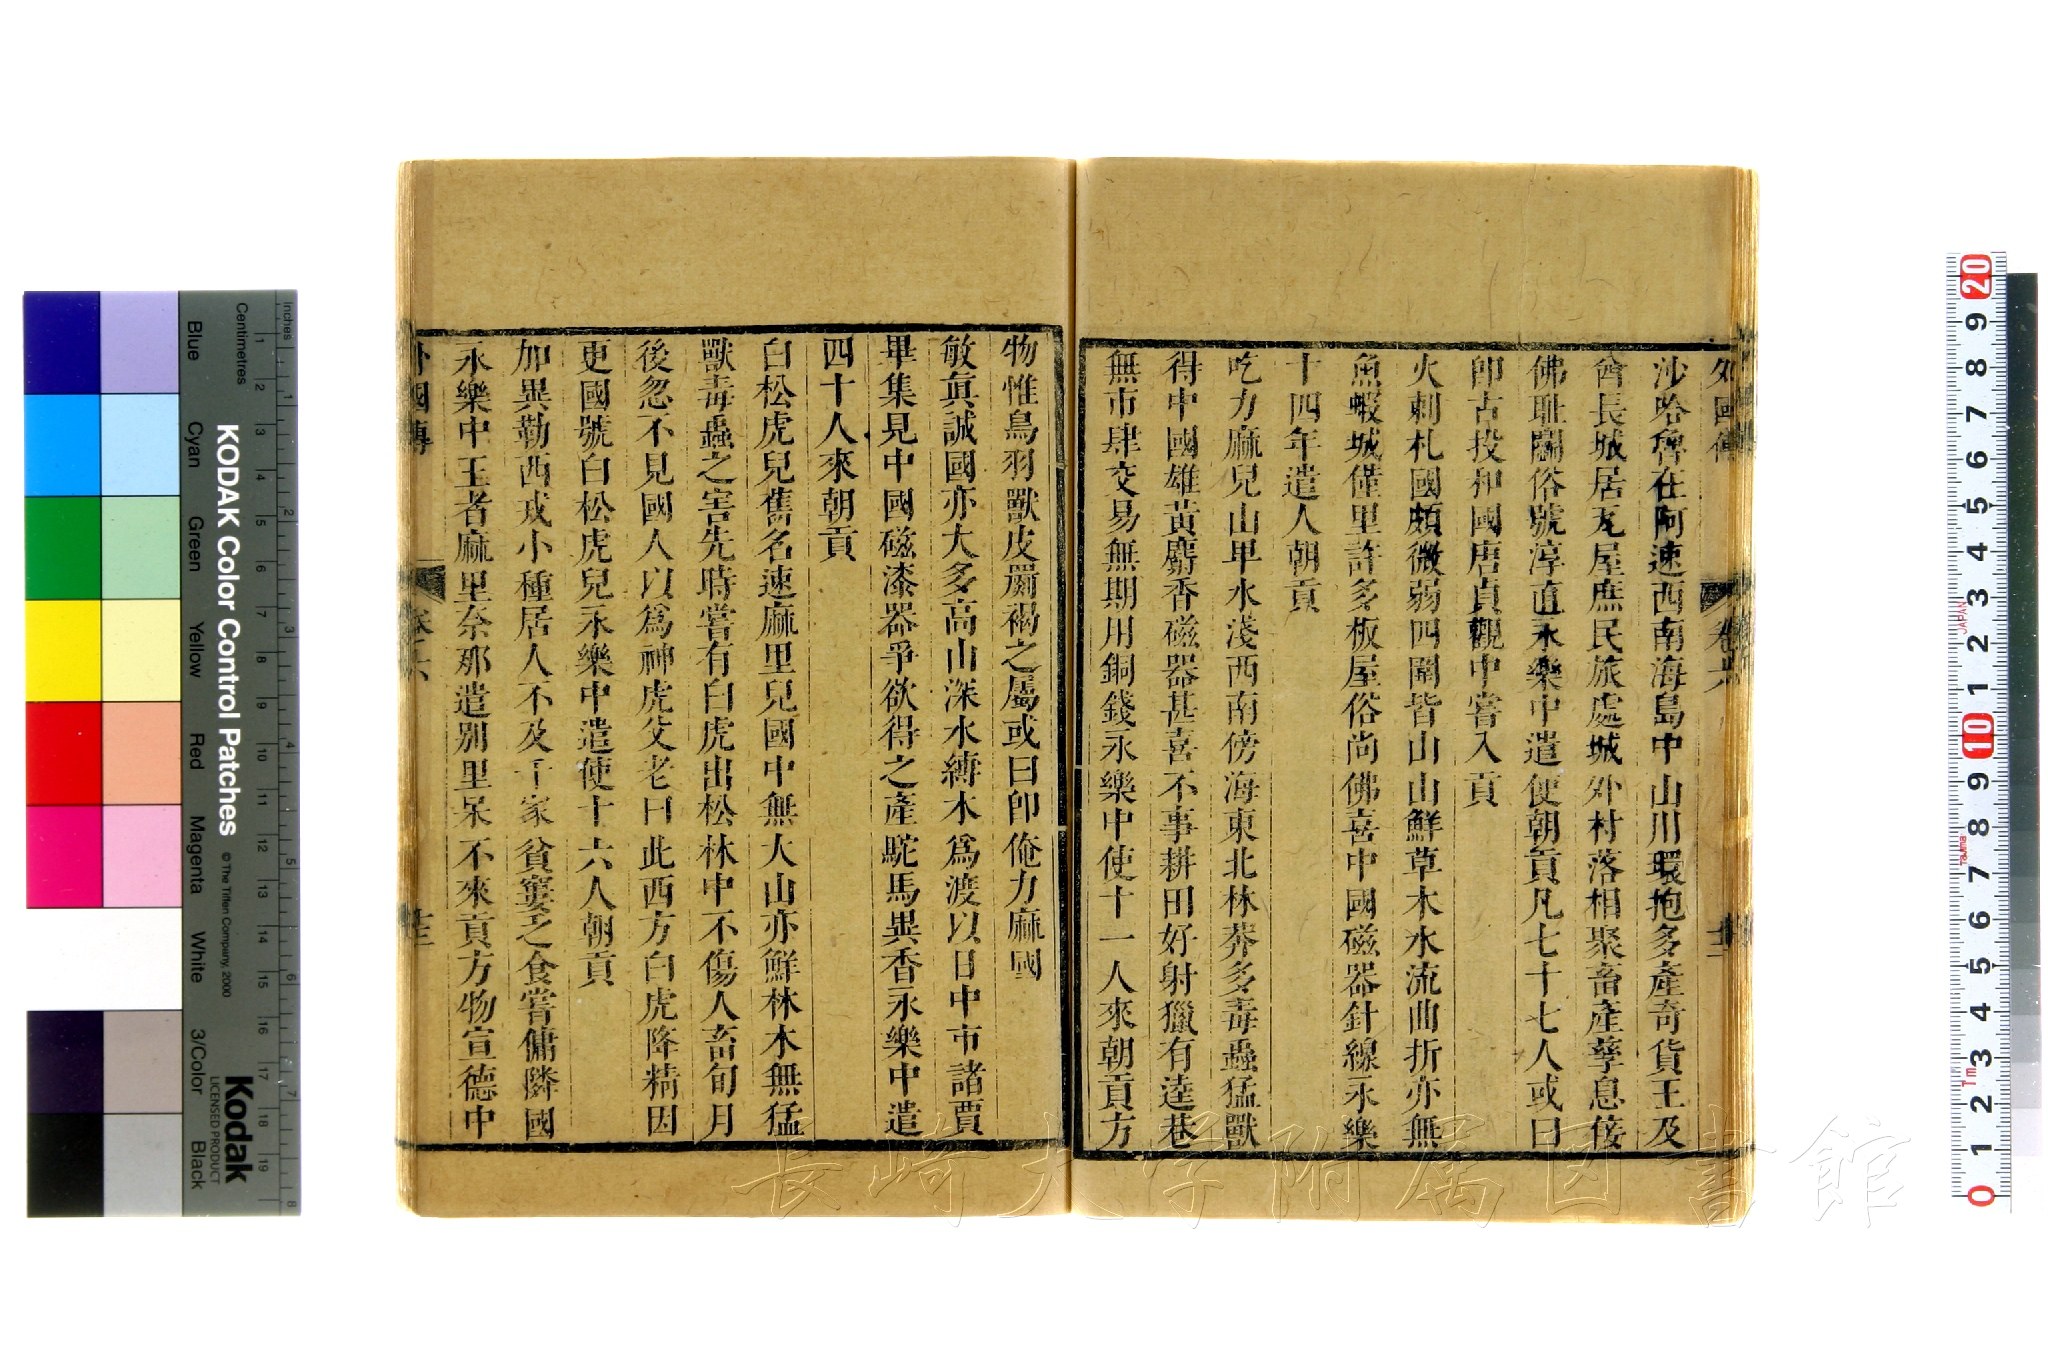 外國傳 卷六
沙哈魯在阿速西南海島中山川環抱多產奇貨王及
酋長城居瓦屋庶民旅處城外村落相聚畜產孳息侫
佛耻鬬俗號淳直永樂中遣使朝貢凡七十七人或曰
卽古投和國唐貞觀中嘗入貢
火剌札國頗微弱四圍皆山山鮮草木水流曲折亦無
魚蝦城僅里許多板屋俗尚佛喜中國磁器針線永樂
十四年遣人朝貢
吃力麻兒山卑水淺西南傍海東北林莽多毒蟲猛獸
得中國雄黃麝香磁器甚喜不事耕田好射獵有逵巷
無市肆交易無期用銅錢永樂中使十一人來朝貢方
物惟鳥羽獸皮罽褐之屬或曰卽俺力麻國
敏眞誠國亦大多高山深水縛木爲渡以日中市諸賈
畢集見中國磁漆器爭欲得之產駝馬異香永樂中遣
四十人來朝貢
白松虎兒舊名速麻里兒國中無大山亦鮮林木無猛
獸毒蟲之害先時嘗有白虎出松林中不傷人畜旬月
後忽不見國人以爲神虎父老曰此西方白虎降精因
更國號白松虎兒永樂中遣使十六人朝貢
加異勒西戎小種居人不及千家貧窶乏食嘗傭隣國
永樂中王者麻里奈那遣別里呆不來貢方物宣德中
外國傳 卷之六 十三
KODAK Color Control Patches
© The Tiffen Company, 2000
Kodak
LICENSED PRODUCT
Inches
Centimetres
Blue Cyan Green Yellow Red Magenta White 3/Color Black
1 2 3 4 5 6 7 8
1 2 3 4 5 6 7 8 9 10 11 12 13 14 15 16 17 18 19
0 1 2 3 4 5 6 7 8 9 10 1 2 3 4 5 6 7 8 9 20
JAPAN
Tajima
長崎大学附属図書館